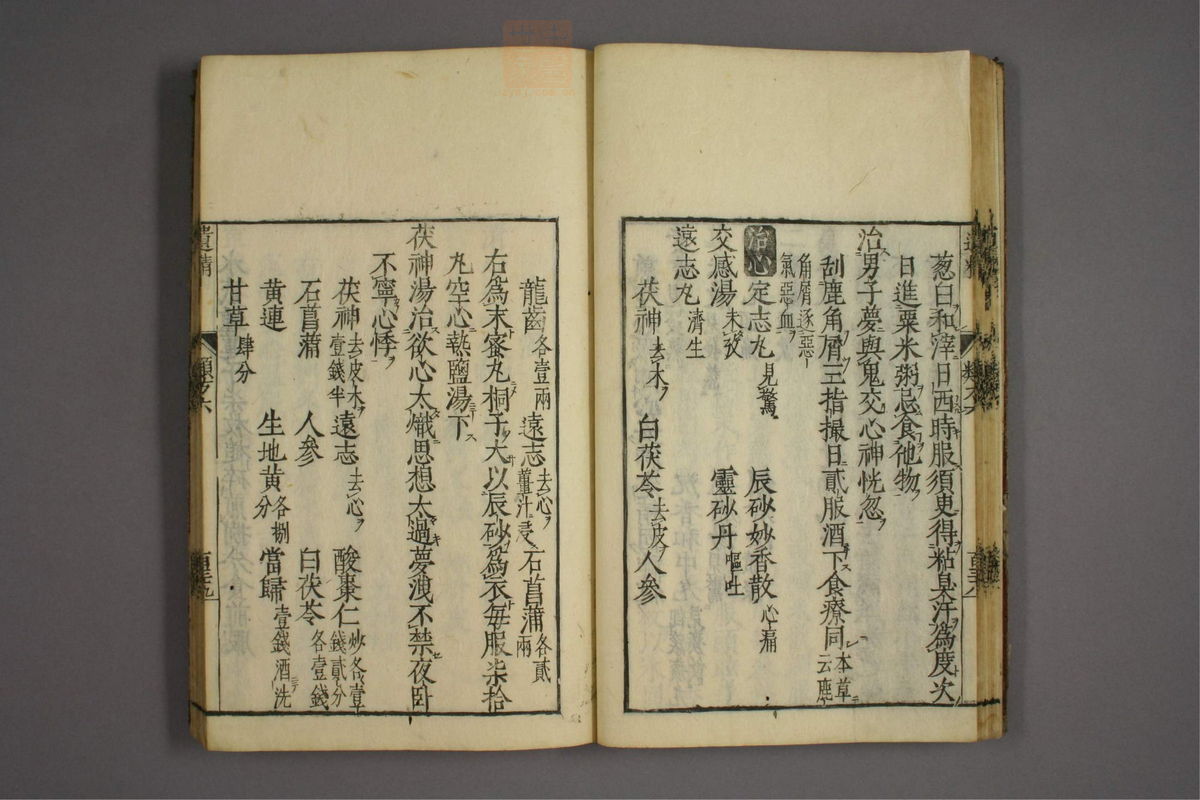 葱白和滓日西時服須臾得粘臭汗為度次
日進粟米粥忌食他物
治男子夢與鬼交心神恍忽
刮鹿角屑三指撮日貳服酒下食療同本草云鹿
角屑逐惡氣惡血
治心 定志丸見驚 辰砂妙香散心痛
交感湯未孜 靈砂丹嘔吐
遠志丸濟生
茯神去木 白茯苓去皮 人參
龍齒各壹兩 遠志去心薑汁 石菖蒲各貳兩
右為末蜜丸桐子大以辰砂為衣每服柒拾
丸空心熱鹽湯下
茯神湯治欲心太熾思想太過夢洩不禁夜卧
不寧心悸
茯神去皮木壹錢半 遠志去心 酸棗仁炒各壹錢貳分
石菖蒲 人參 白茯苓各壹錢
黃連 生地黃各捌分 當歸壹錢酒洗
甘草肆分
遺精
類方六